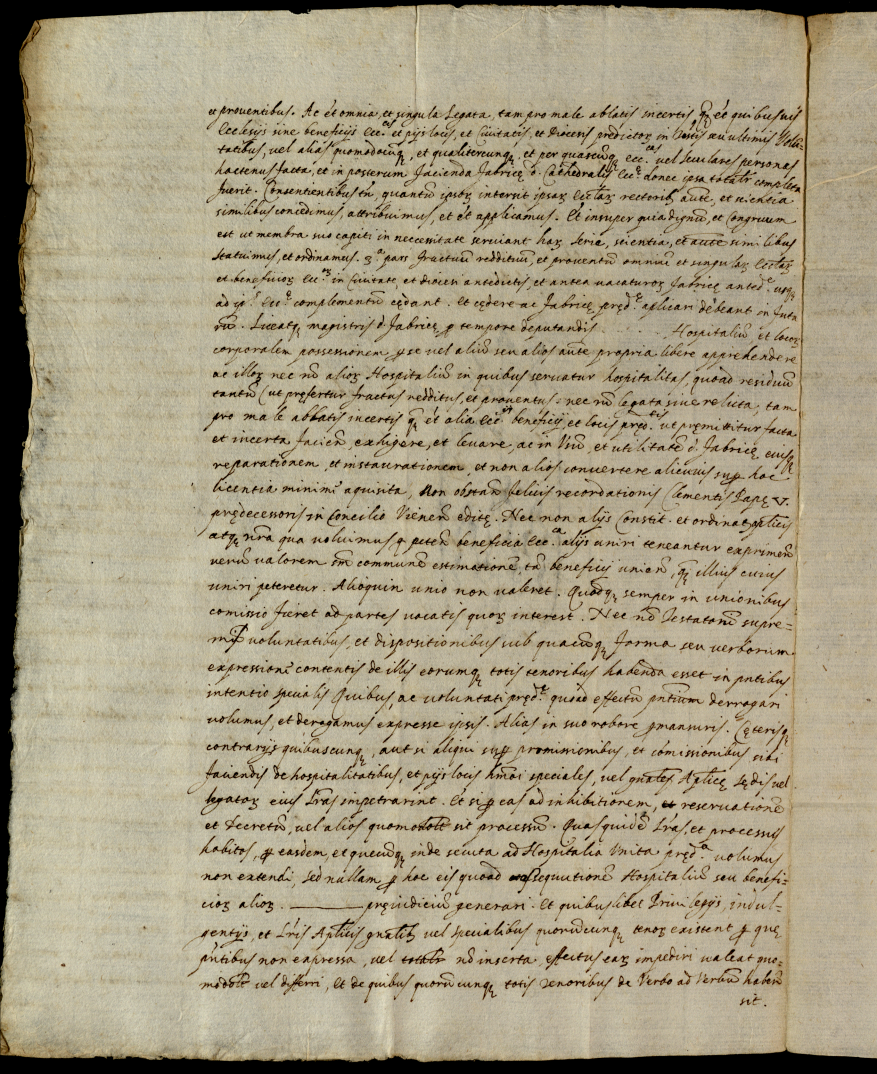 et proventibus. Ac ēt omnia, et singula Legata, tam pro male ablatis incertis q̄ ēt quibusvis
Ecclesijs sive beneficijs Ecc.cis et pijs locis, et Civitatis, et Diocesis predictor in Testis seu ultimis Volu=
tatibus, vel aliàs quomodocunq, et qualitercunq, et per quascunq Ecc.cas vel seculares personas
hactenus facta, et in posterum facienda Fabrice d. Cathedralis Ecc.e donec ipsa totalr completa
fuerit. Consentientibus tn, quantū ipsor intersit ipsar Ecclar rectorib, aucte, et scientia
similibus concedimus, attribuimus, et ēt applicamus. Et insuper quia dignū, et Congruum
est ut membra suo capiti in neccessitate serviant har serie, scientia, et aucte similibus
statuimus, et ordinamus. 3.a pars fructuum reddituū, et proventū omniū et singular Ecclar
et beneficior Ecc.cor in Civitate, et diocesi antedictis, et antea vacaturor fabrice anted.e usq
ad ip. Ecc.e complementū cędant. Et cędere ac fabrice pręd.e aplicari debeant in futu
rū. Liceatq magistris d. fabrice p tempore deputandis . . . . Hospitaliū et locor
corporalem possessionem p se vel aliū seu alios aucte propria libere apprehendere
ac illor nec nō alior Hospitaliū in quibus servatur hospitalitas, quoad residuū
tantū (ut pręfertur fructus redditus, et proventus. nec nō legata sive relicta, tam
pro male ablatis incertis q̄ ēt alia Ecc.cis beneficijs, et locis pręd.ctis ut pręmittitur facta
et incerta facien, exhigere, et levare, ac in Usū, et utilitatē d. fabrice eiusq
reparationem, et instaurationem, et non alios convertere alicuius sup hoc
licentia minimè aquisita, Non obstan felicis recordationis Clementis Papę V.
pręde​cessoris in Concilio Vienen editę. Nec non alijs Constit. et ordinat aplicis
atq nra qua volumus q peten beneficia Ecc.ca alijs uniri teneantur exprimere
verū valorem sm communē estimationē tā beneficij unien, q̄ illius cuius
uniri peteretur. Alioquin unio non valeret. Quodq semper in unionibus
comissio fieret ad partes vocatis quor interest. Nec nō Testatorū supre=
mis voluntatibus, et dispositionibus sub quacunq forma seu verborum
expressionē contentis de illis eorumq totis tenoribus habenda esset in pntibus
intentio specialis Quibus, ac voluntati pręd.e quoad effectū pntium derrogari
volumus, et derogamus expresse ipsis. Aliàs in suo robore pmansuris. Cęterisq
contrarijs quibuscunq, aut si aliqui sup promissionibus, et comissionibus sibi
faciendis de hospitalitatibus, et pijs locis hmōi speciales, vel gnales Aplicę Sędis vel
legator eius Lras impetrarint. Et si p eas ad inhibitionem, reservationē
et Decretū, vel alios quomodolt sit processū. Quas quidē Lras, et processus
habitos, p easdem, et quecunq inde secuta ad Hospitalia Unita pręd.a volumus
non extendi, sed nullam p hoc eis quoad assequutionē Hospitaliū seu benefi=
cior alior ———— pręiudiciū generari. Et quibuslibet Privilegijs, indul=
gentijs, et Lris Aplicis gnalib vel specialibus quorūcunq tenor existent p que
pntibus non expressa, vel nō inserta, effectus ear impediri valeat quo=
modolt vel differri, Et de quibus quorūcunq totis Tenoribus de Verbo ad Verbū haben
sit.